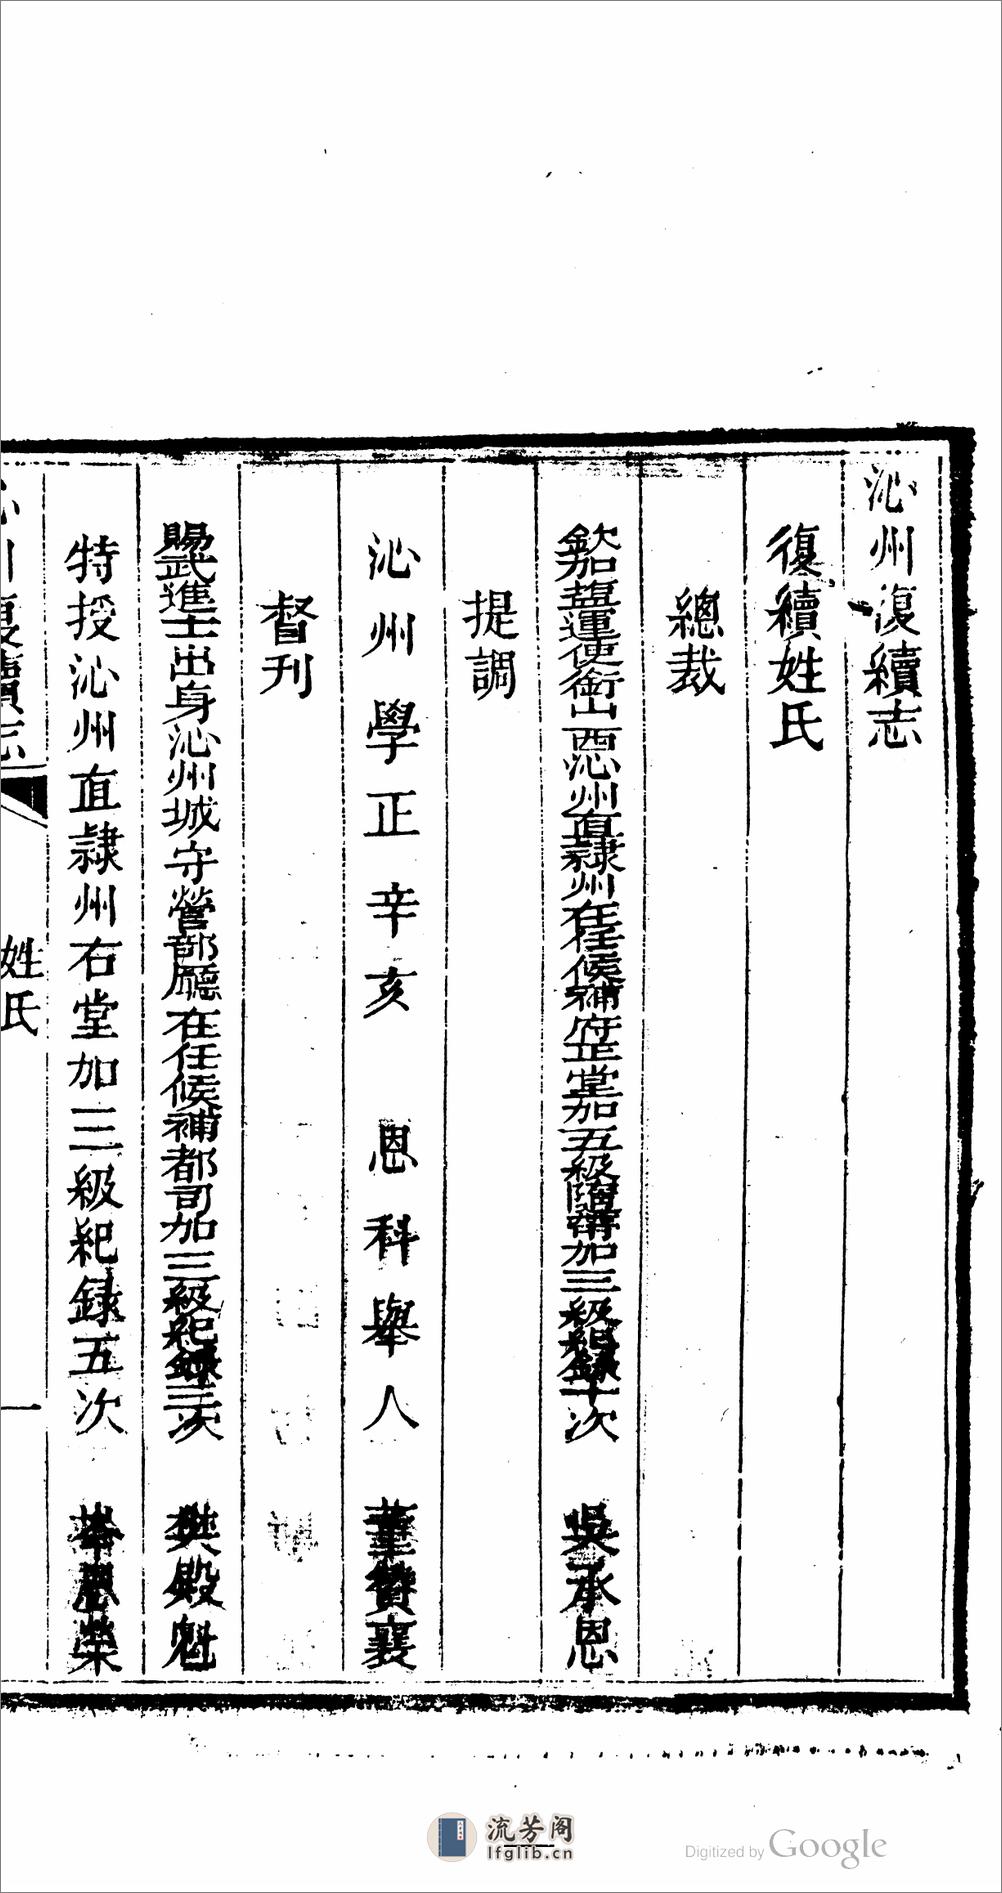 沁州復續志
復續姓氏
總裁
欽加鹽運使銜山西沁州直隸州在任候補府正堂加五級隨帶加三級紀錄十次 吳承恩
提調
沁州學正辛亥 恩科舉人 董贊襄
督刊
賜武進士出身沁州城守營部廳在任候補都司加三級紀錄三次 樊殿魁
特授沁州直隸州右堂加三級紀錄五次 恩榮
沁州復續志 姓氏 一
流芳阁
lfglib.cn
Digitized by Google